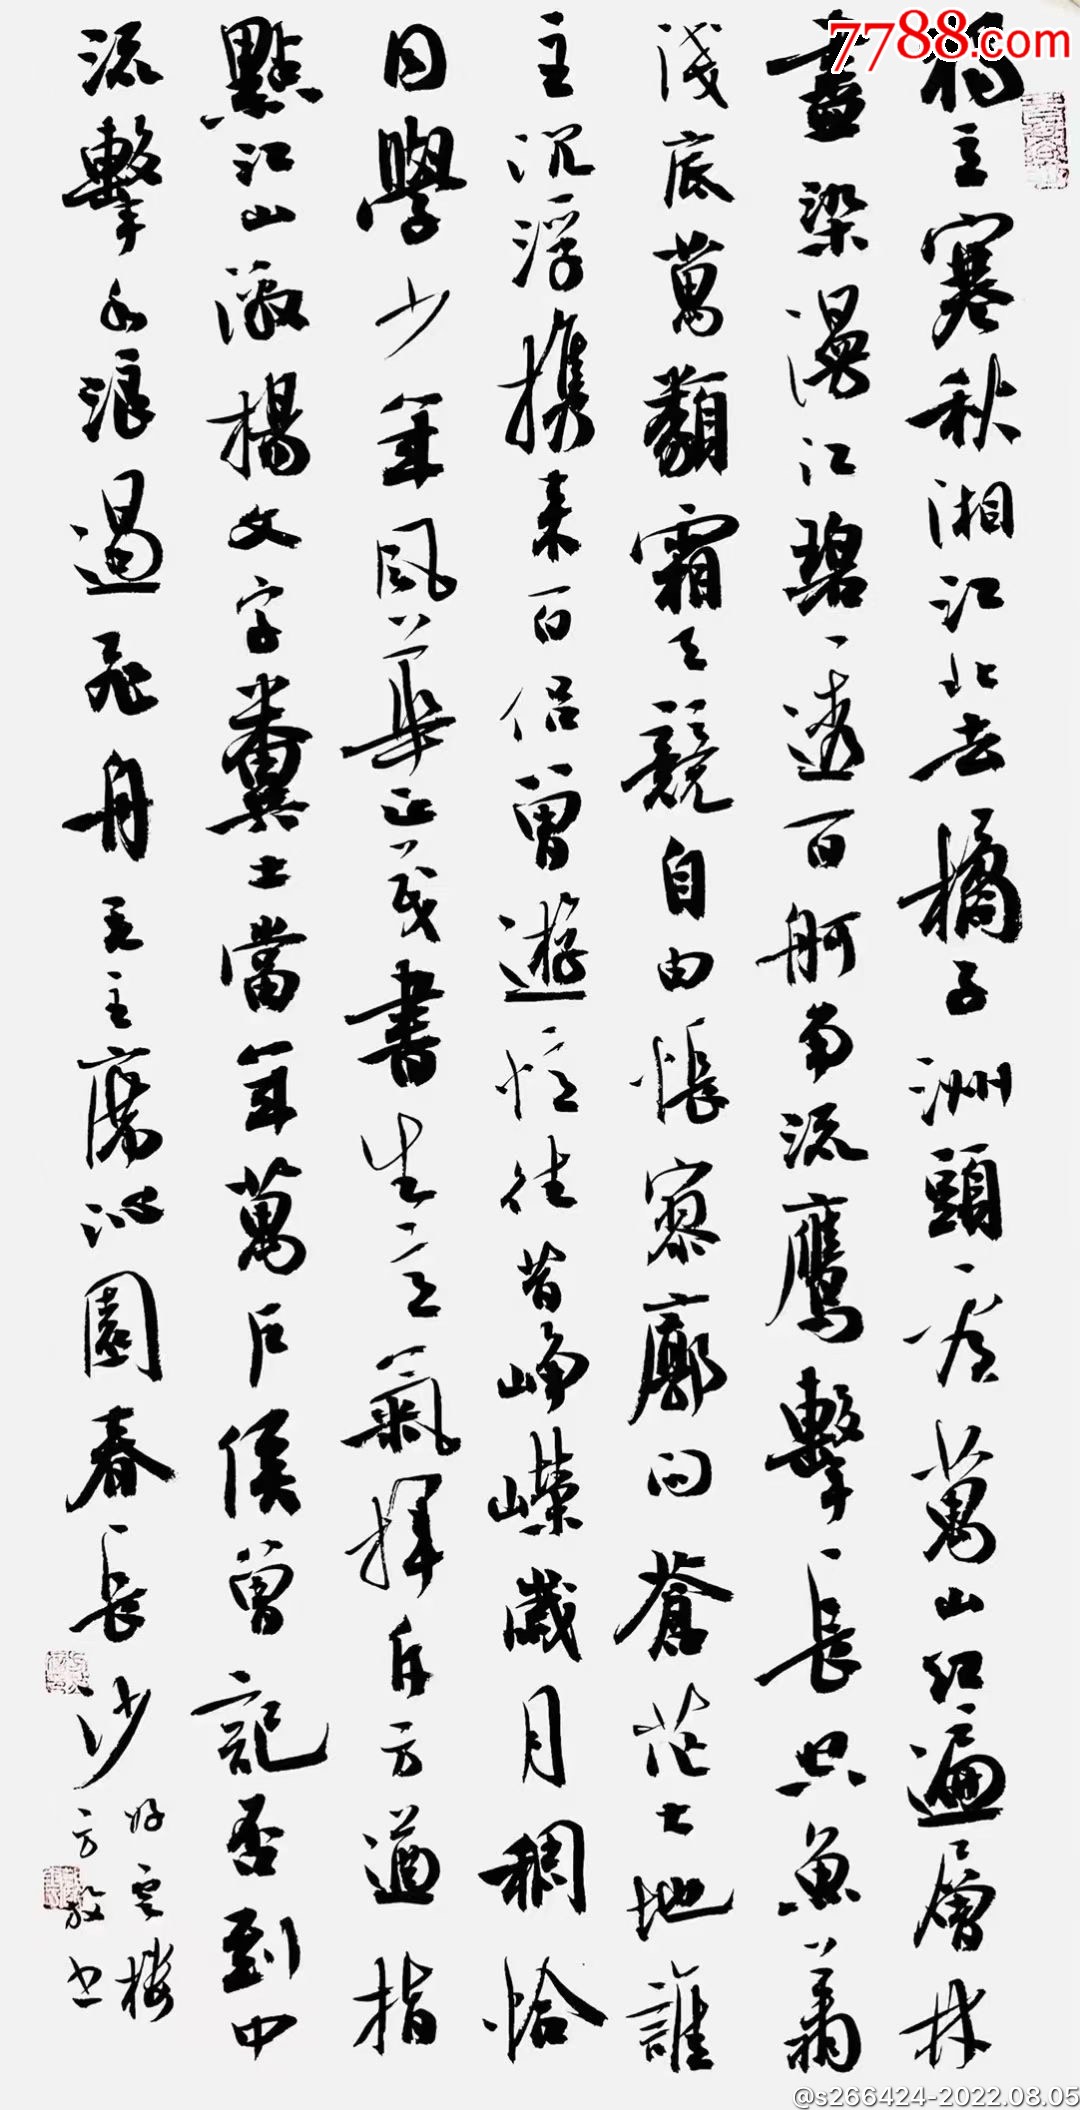 獨立寒秋湘江北去橘子洲頭看萬山紅遍層林
盡染漫江碧透百舸爭流鷹擊長空魚翔
淺底萬類霜天競自由悵寥廓問蒼茫大地誰
主沉浮携来百侣曾遊憶往昔崢嶸歲月稠恰
同學少年風華正茂書生意氣揮斥方遒指
點江山激揚文字糞土當年萬户侯曾記否到中
流擊水浪遏飛舟毛主席沁園春長沙
好雲樓
方放书
7788.com
@s266424-2022.08.05